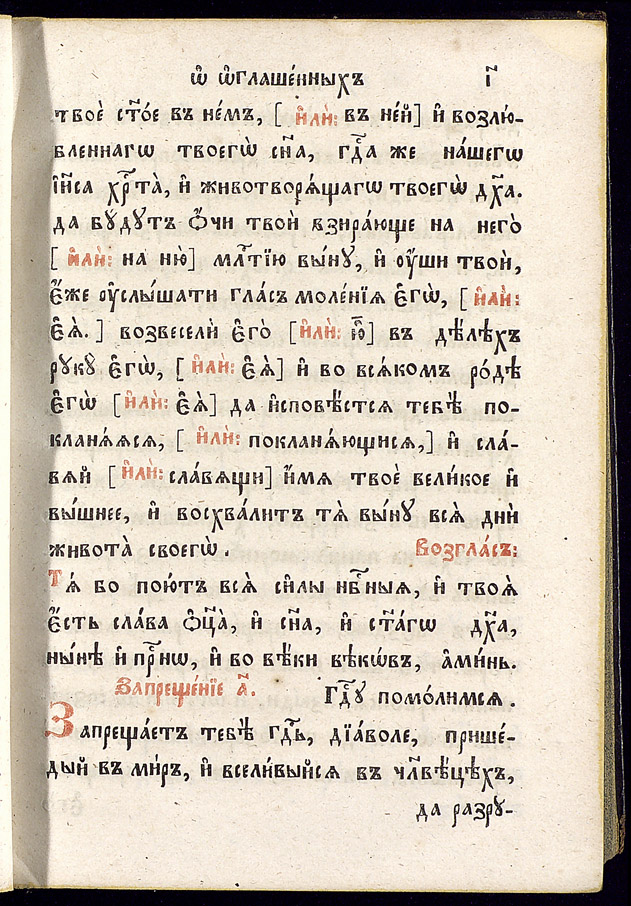 Ѽ ѡ҆глаше́нныхъ і҃
твоѐ ст҃о́е въ не́мъ, [ и҆лѝ: въ не́й] и҆ возлю́-
бленнагѡ твоегѡ̀ сн҃а, гдⷭ҇а же на́шегѡ
і҆и҃са хрⷭ҇та̀, и҆ животворѧ́щагѡ твоегѡ̀ дх҃а.
да бꙋ́дꙋтъ ѻ҆́чи твоѝ взира́юще на него̀
[ и҆лѝ: на ню̀] млⷭ҇тїю вы́нꙋ, и҆ оу҆́ши твоѝ,
є҆́же оу҆слы́шати гла́съ моле́нїѧ є҆гѡ̀, [ и҆лѝ:
є҆ѧ̀.] возвеселѝ є҆го̀ [и҆лѝ: ю҆̀] въ дѣ́лѣхъ
рꙋкꙋ̀ є҆гѡ̀, [ и҆лѝ: є҆ѧ̀] и҆ во всѧ́комъ ро́дѣ
є҆гѡ̀ [и҆лѝ: є҆ѧ̀] да и҆сповѣ́стсѧ тебѣ̀ по-
кланѧ́ѧсѧ, [ и҆лѝ: покланѧ́ющисѧ,] и҆ сла́-
вѧй [и҆лѝ: сла́вѧщи] и҆́мѧ твоѐ вели́кое и҆
вы́шнее, и҆ восхва́литъ тѧ̀ вы́нꙋ всѧ̑ дни̑
живота̀ своегѡ̀. Возгла́съ:
Тѧ́ бо пою́тъ всѧ̑ си̑лы нбⷭ҇ныѧ, и҆ твоѧ̀
є҆́сть сла́ва ѻ҆ц҃а̀, и҆ сн҃а, и҆ ст҃а́гѡ дх҃а,
ны́нѣ и҆ при́снѡ, и҆ во вѣ́ки вѣкѡ́въ, а҆ми́нь.
Запреще́нїе а҃. Гдⷭ҇ꙋ помо́лимсѧ.
Запреща́етъ тебѣ̀ гдⷭ҇ь, дїа́воле, прише́-
дый въ мі́ръ, и҆ всели́выйсѧ въ чл҃вѣ́цѣхъ,
да разрꙋ-